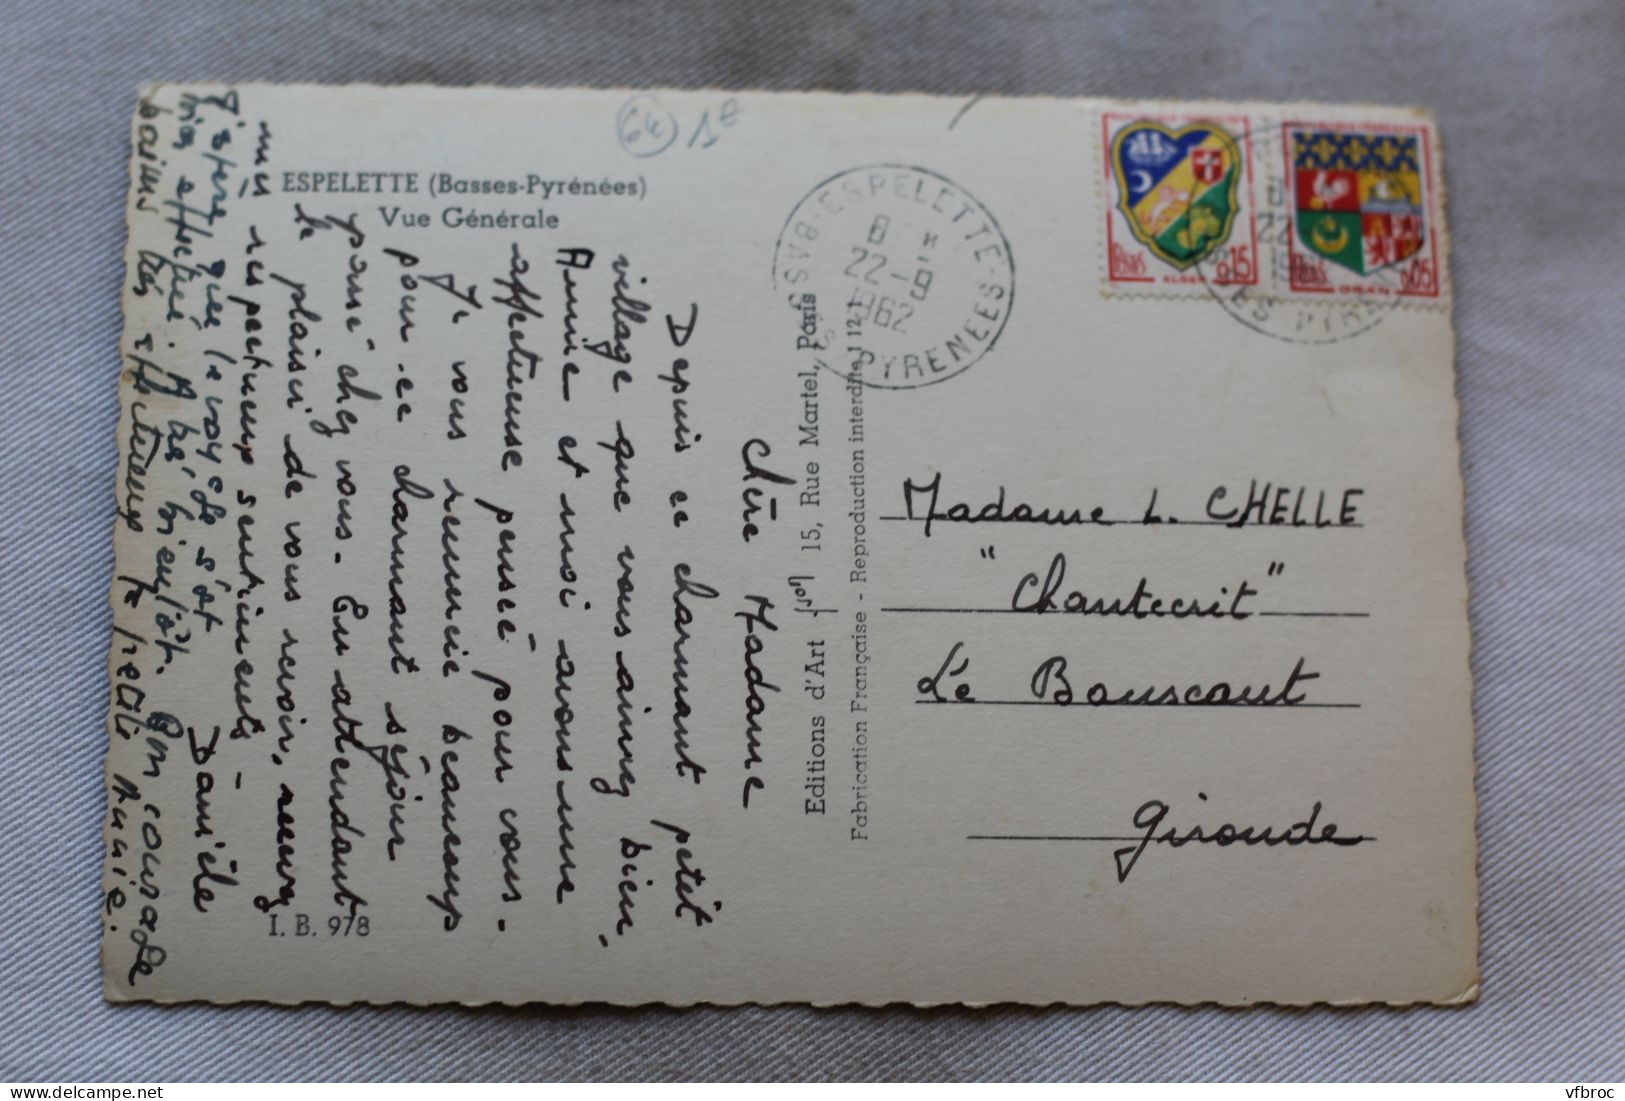 (64) 1€
ESPELETTE (Basses-Pyrénées)
Vue Générale
Chère Madame
Depuis ce charmant petit
village que vous aimez bien -
Annie et moi avons une
affectueuse pensée pour vous.
Je vous remercie beaucoup
pour ce charmant séjour
passé chez vous. En attendant
le plaisir de vous revoir, recevez
mes respectueux sentiments -
Danièle
J'espère que le voyage s'est
bien effectué. A très bientôt. Bon courage
baisers très affectueux ta petite Annie.
I. B. 978
Editions d'Art 15, Rue Martel, Paris
Fabrication Française - Reproduction interdite 1 12 1
ESPELETTE
BASSES PYRENEES
8 H
22-8
1962
REPUBLIQUE FRANÇAISE
POSTES 0,15
ALGER
REPUBLIQUE FRANÇAISE
POSTES 0,05
ORAN
Madame L. CHELLE
"Chantecrit"
Le Bouscaut
Gironde
vfbroc